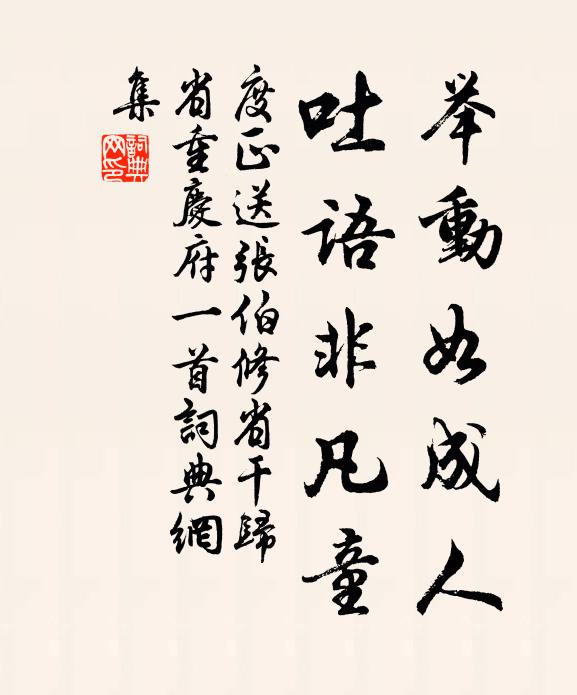 举動如成人
吐語非凡童
度正送張伯修省干歸
省重慶府一首詞典網
集
詞典
网印